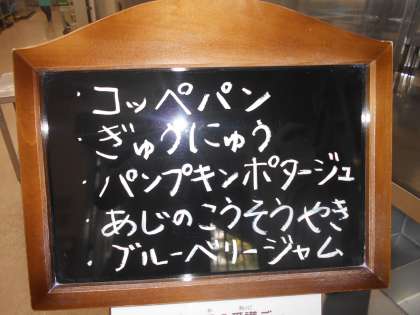 ・コッペパン
・ぎゅうにゅう
・パンプキンポタージュ
・あじのこうそうやき
・ブルーベリージャム